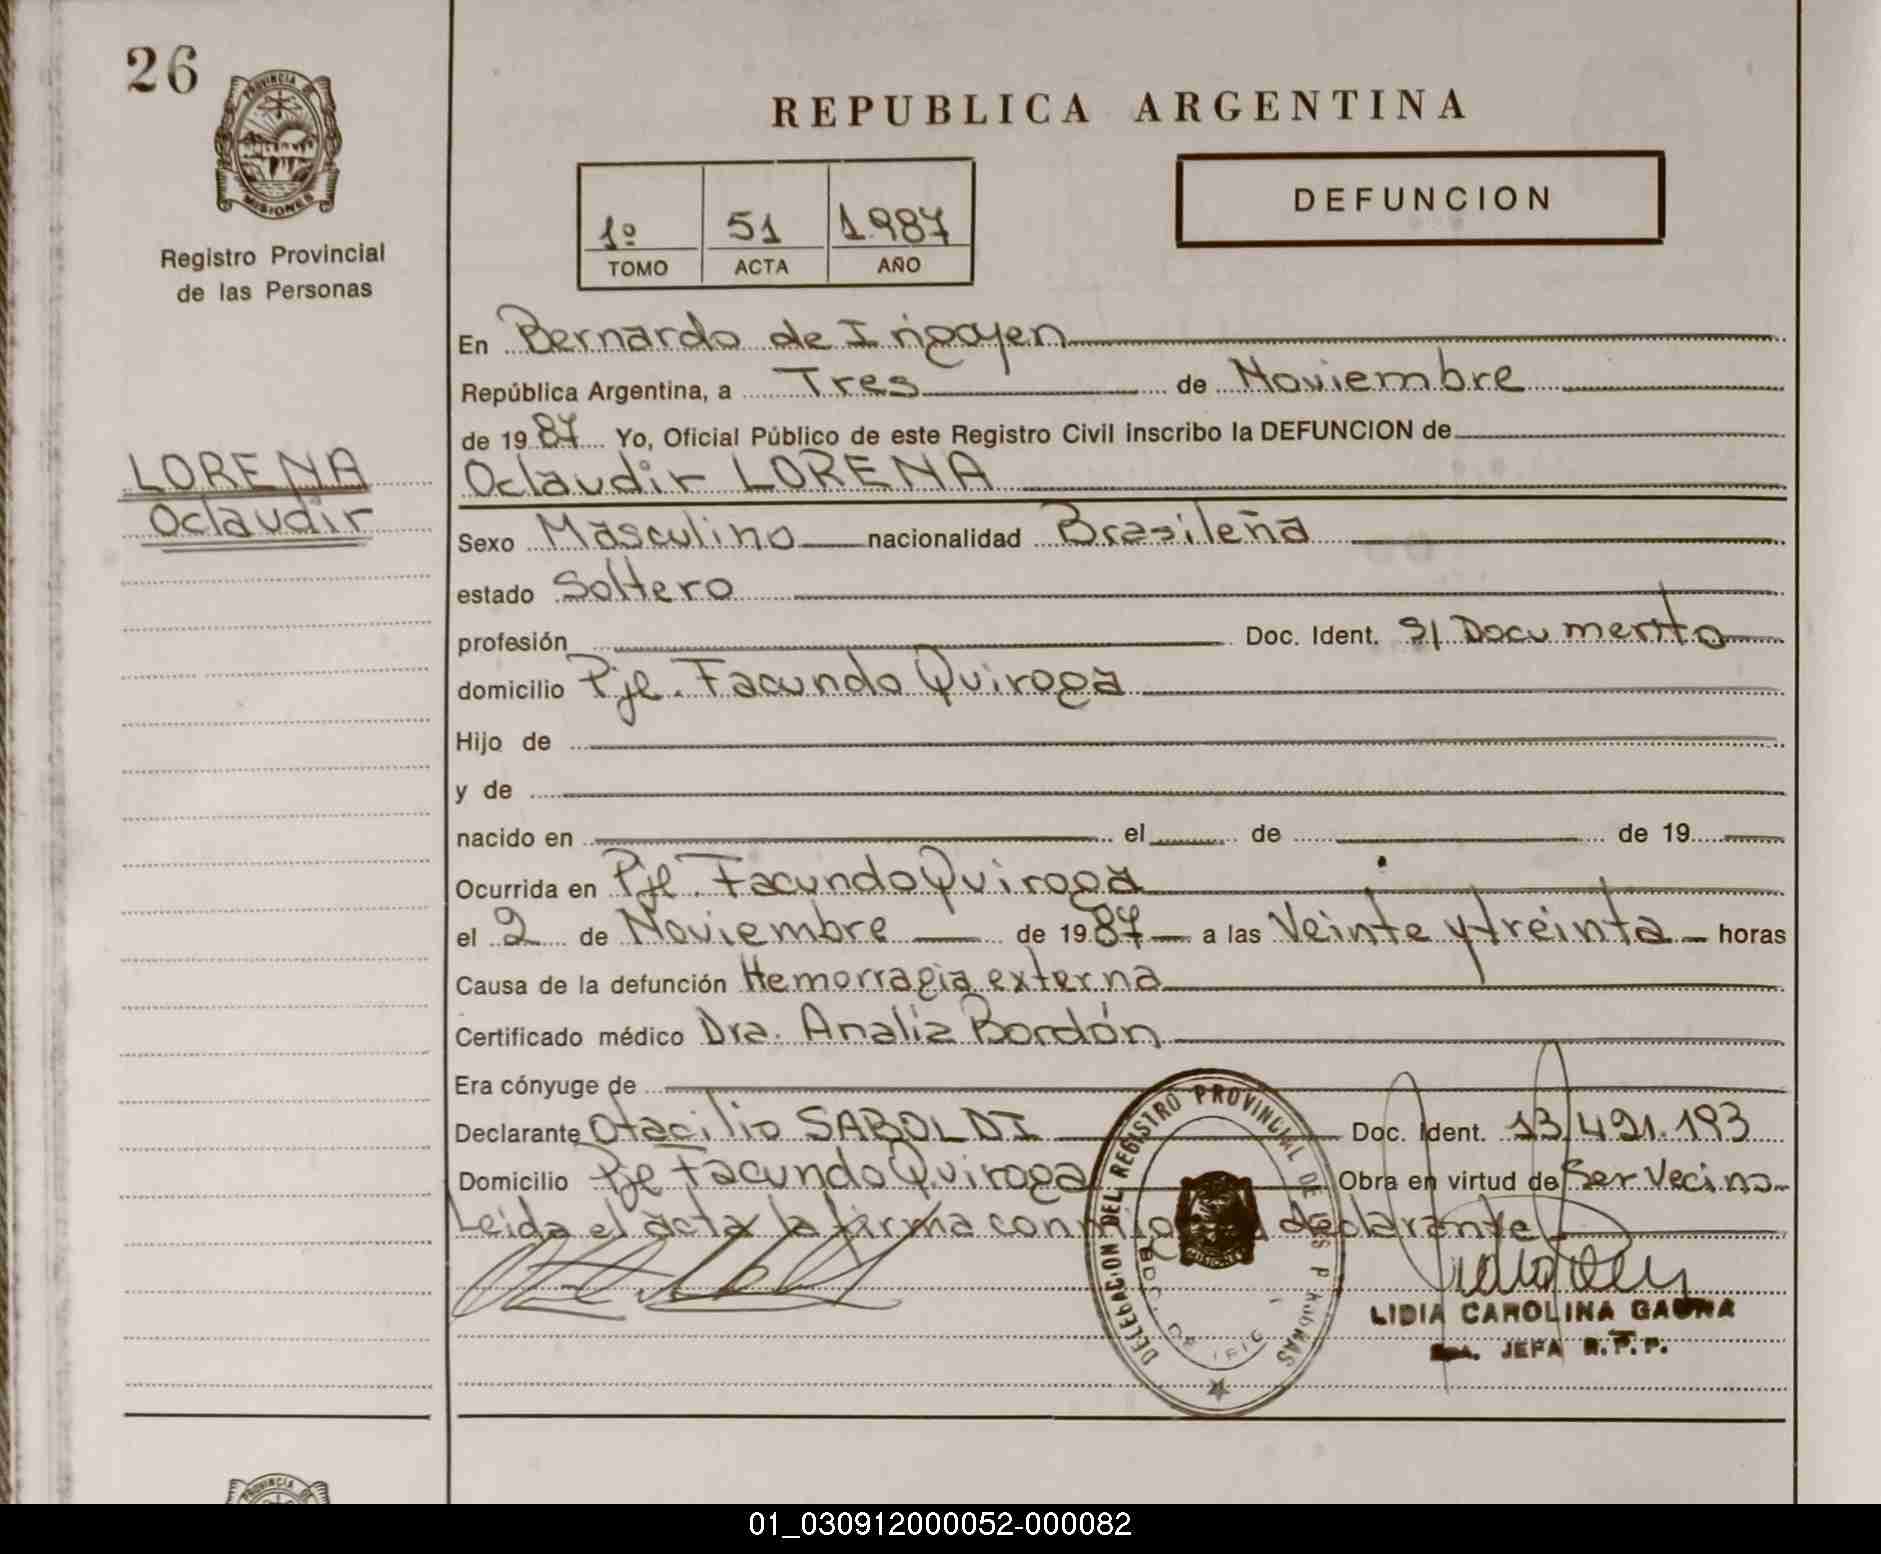 26
PROVINCIA DE
MISIONES
Registro Provincial
de las Personas
REPUBLICA ARGENTINA
1º 51 1987
TOMO ACTA AÑO
DEFUNCION
En Bernardo de Irigoyen
República Argentina, a Tres de Noviembre
de 1987 Yo, Oficial Público de este Registro Civil inscribo la DEFUNCION de
LORENA
Oclaudir
Oclaudir LORENA
Sexo Masculino nacionalidad Brasileña
estado Soltero
profesión Doc. Ident. S/ Documento
domicilio Pje. Facundo Quiroga
Hijo de
y de
nacido en el de de 19
Ocurrida en Pje. Facundo Quiroga
el 2 de Noviembre de 1987 a las Veinte y treinta horas
Causa de la defunción Hemorragia externa
Certificado médico Dra. Analia Bordón
Era cónyuge de
Declarante Otacilio SABOLDI Doc. Ident. 13.421.193
Domicilio Pje Facundo Quiroga Obra en virtud de Ser Vecino
Leida el acta la firma conmigo declarante
DELEGACION DEL REGISTRO PROVINCIAL DE LAS PERSONAS
LIDIA CAROLINA GAUNA
JEFA R.P.P.
PROVINCIA DE
01_030912000052-000082